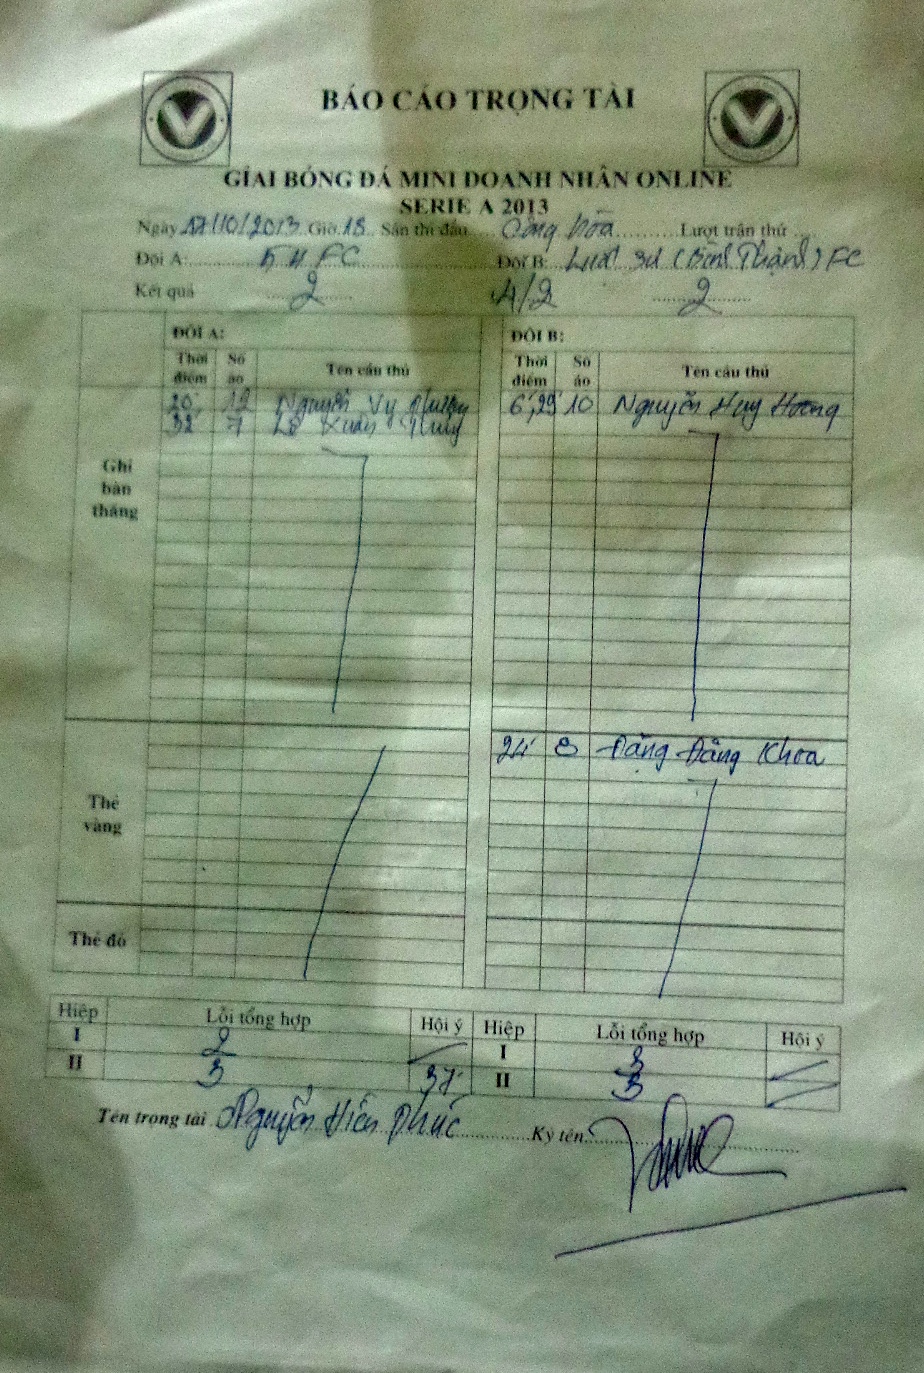 BÁO CÁO TRỌNG TÀI
GIẢI BÓNG ĐÁ MINI DOANH NHÂN ONLINE
SERIE A 2013
Ngày 17/10/2013 Giờ 18 Sân thi đấu Cộng hòa Lượt trận thứ
Đội A: FC Đội B: Luật sư (Bình Thạnh) FC
Kết quả 2 A/2 2
ĐỘI A: ĐỘI B:
Thời điểm Số áo Tên cầu thủ Thời điểm Số áo Tên cầu thủ
Ghi bàn thắng
20' 12 Nguyễn Vy 6', 29' 10 Nguyễn Huy Hoàng
32' 7 Lê Xuân
Thẻ vàng
24' 8 Đặng Đăng Khoa
Thẻ đỏ
Hiệp Lỗi tổng hợp Hội ý Hiệp Lỗi tổng hợp Hội ý
I 2 I 3
II 3 37' II 3
Tên trọng tài Nguyễn Hiền Phúc Ký tên